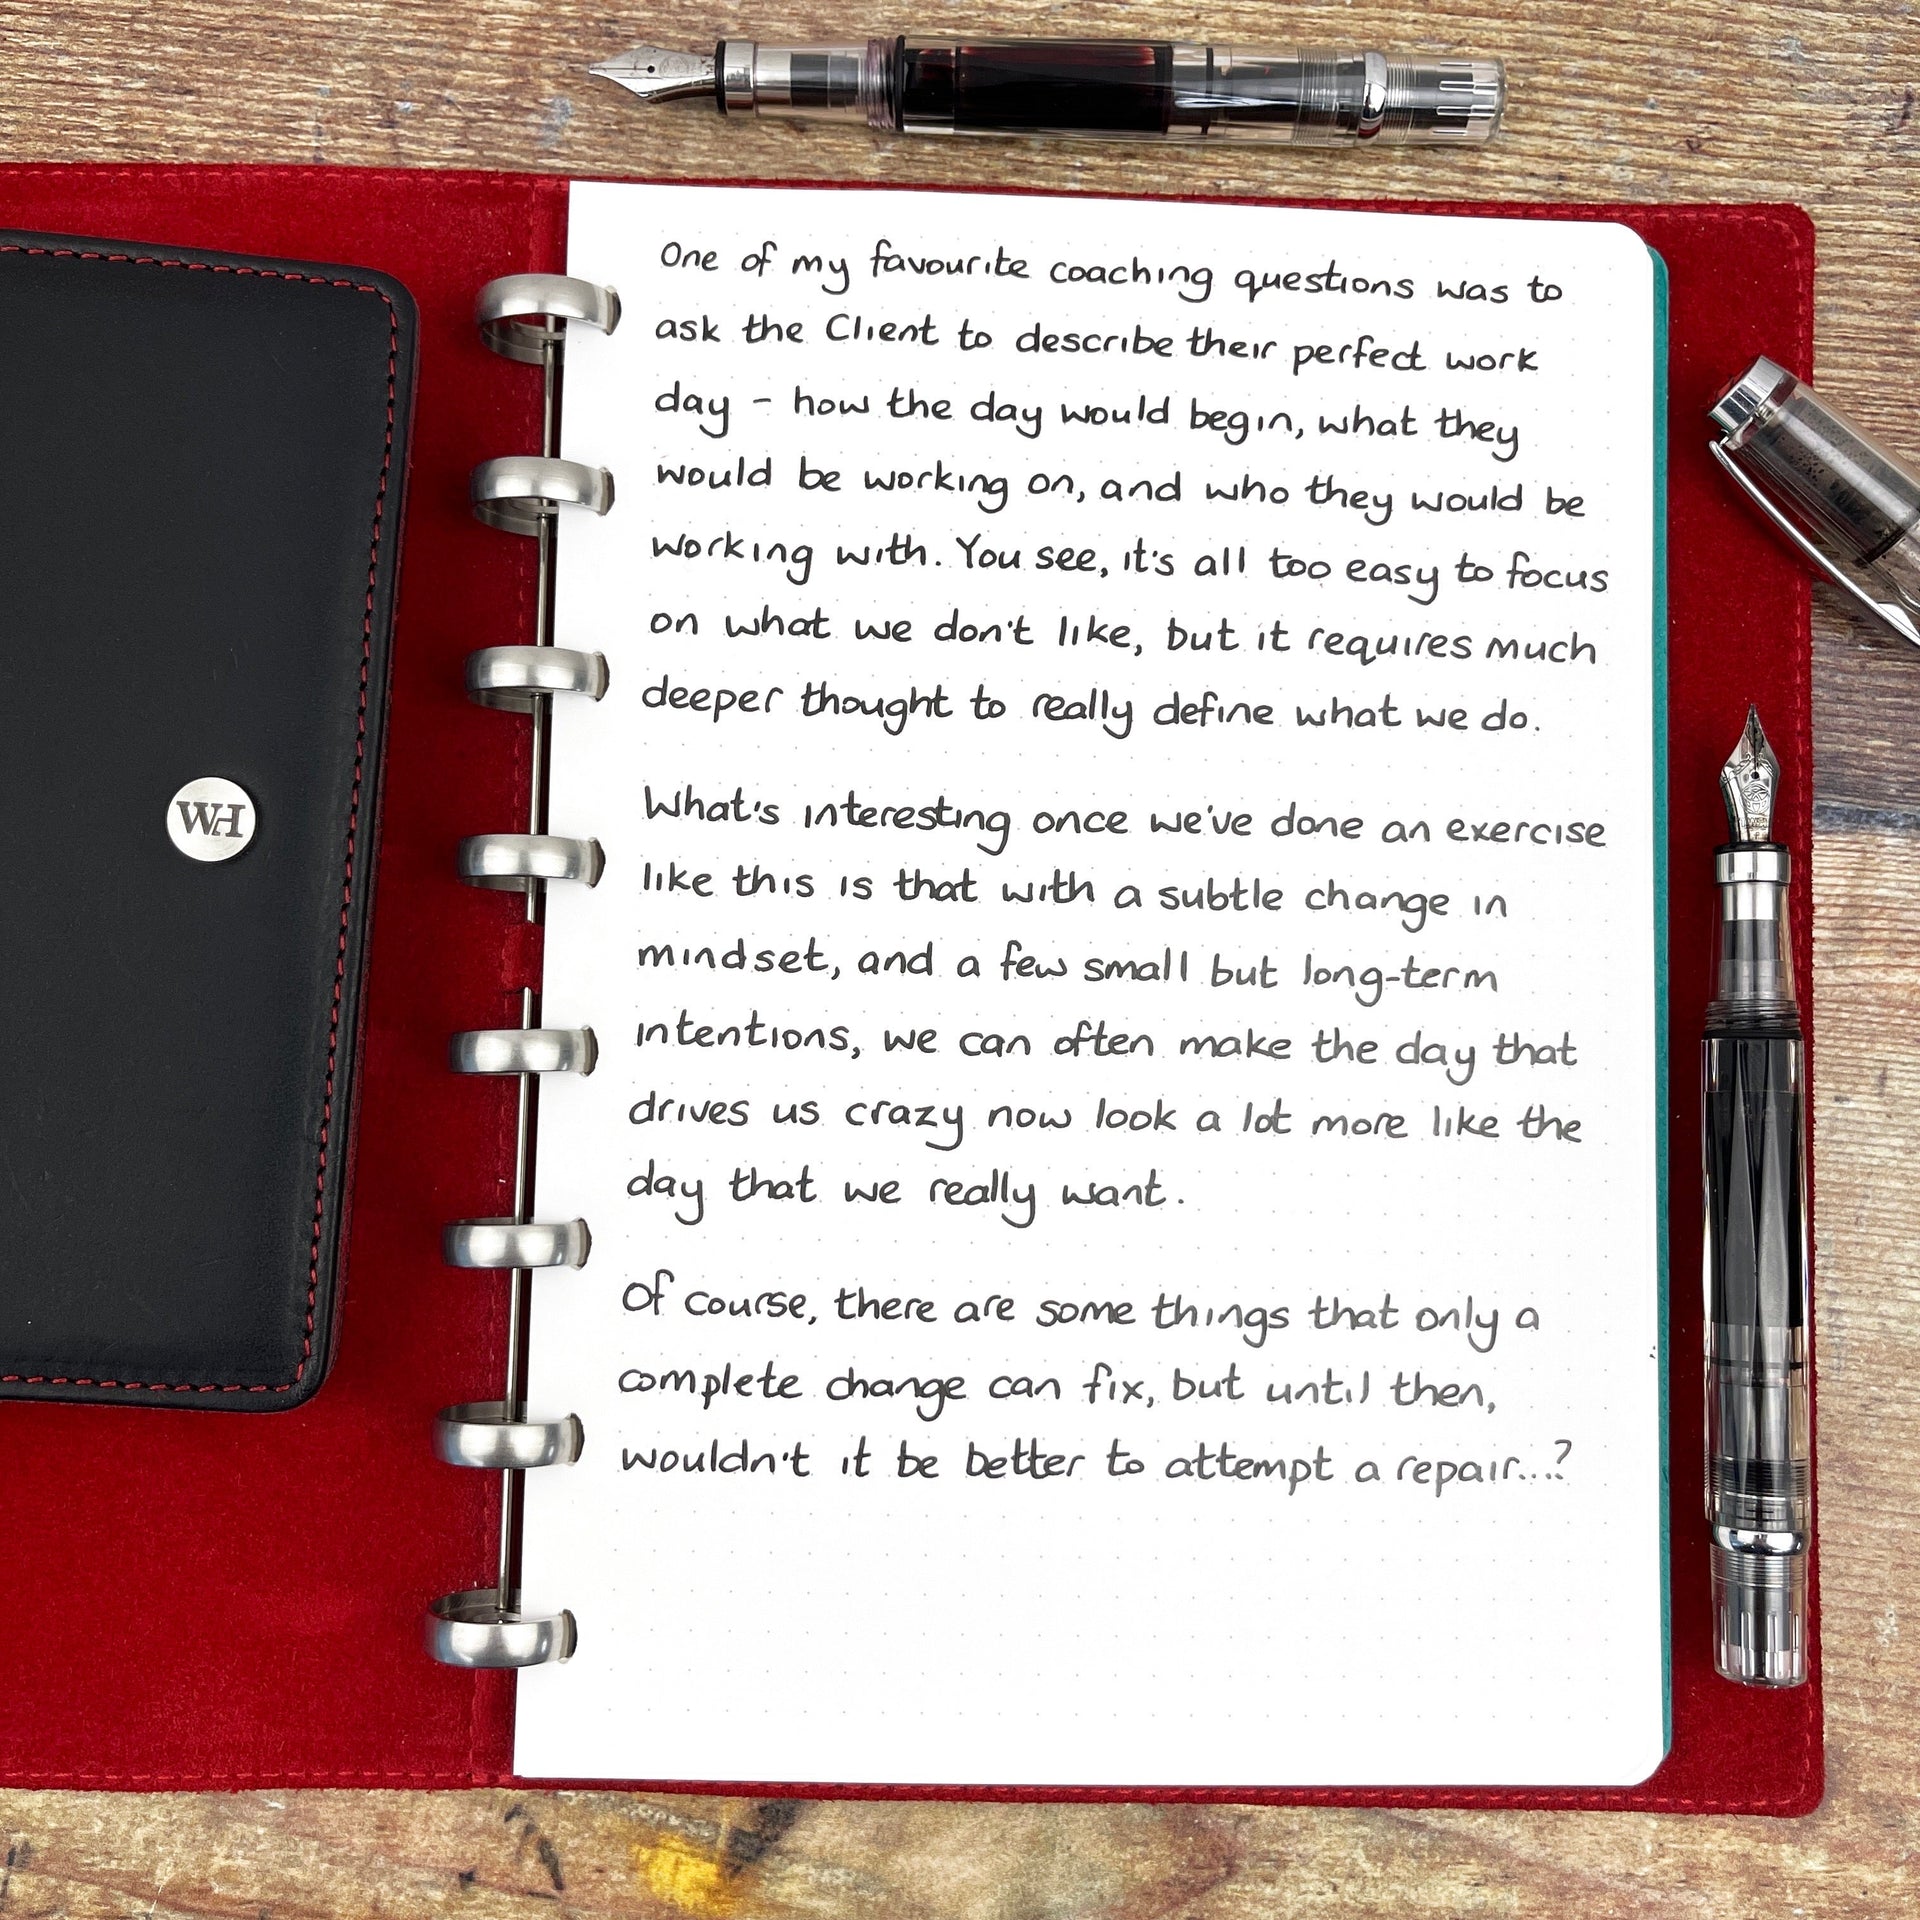 One of my favourite coaching questions was to
ask the Client to describe their perfect work
day - how the day would begin, what they
would be working on, and who they would be
working with. You see, it's all too easy to focus
on what we don't like, but it requires much
deeper thought to really define what we do.
What's interesting once we've done an exercise
like this is that with a subtle change in
mindset, and a few small but long-term
intentions, we can often make the day that
drives us crazy now look a lot more like the
day that we really want.
Of course, there are some things that only a
complete change can fix, but until then,
wouldn't it be better to attempt a repair...?
WH